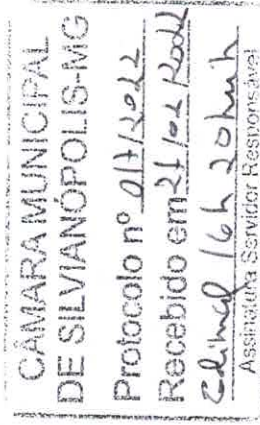 CÂMARA MUNICIPAL
DE SILVIANÓPOLIS-MG
Protocolo nº 017/2022
Recebido em 21/02/2022
Edimal 16h 20min
Assinatura Servidor Responsável